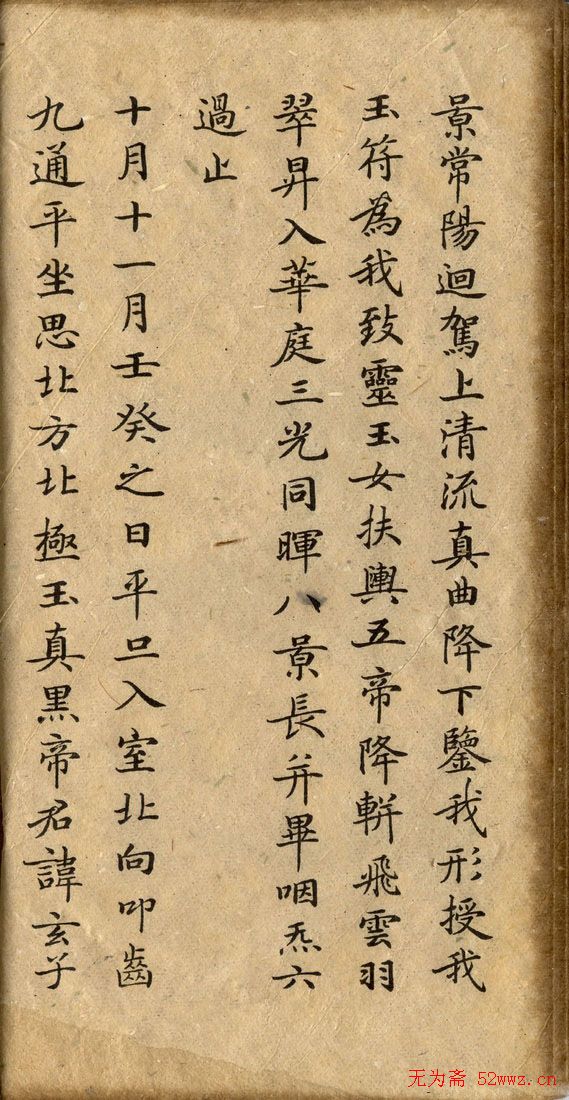 景常陽迴駕上清流真曲降下鑒我形授我
玉符為我致靈玉女扶輿五帝降軿飛雲羽
翠昇入華庭三光同暉八景長并畢咽炁六
過止
十月十一月壬癸之日平旦入室北向叩齒
九通平坐思北方北極玉真黑帝君諱玄子
无为斋 52wwz.cn